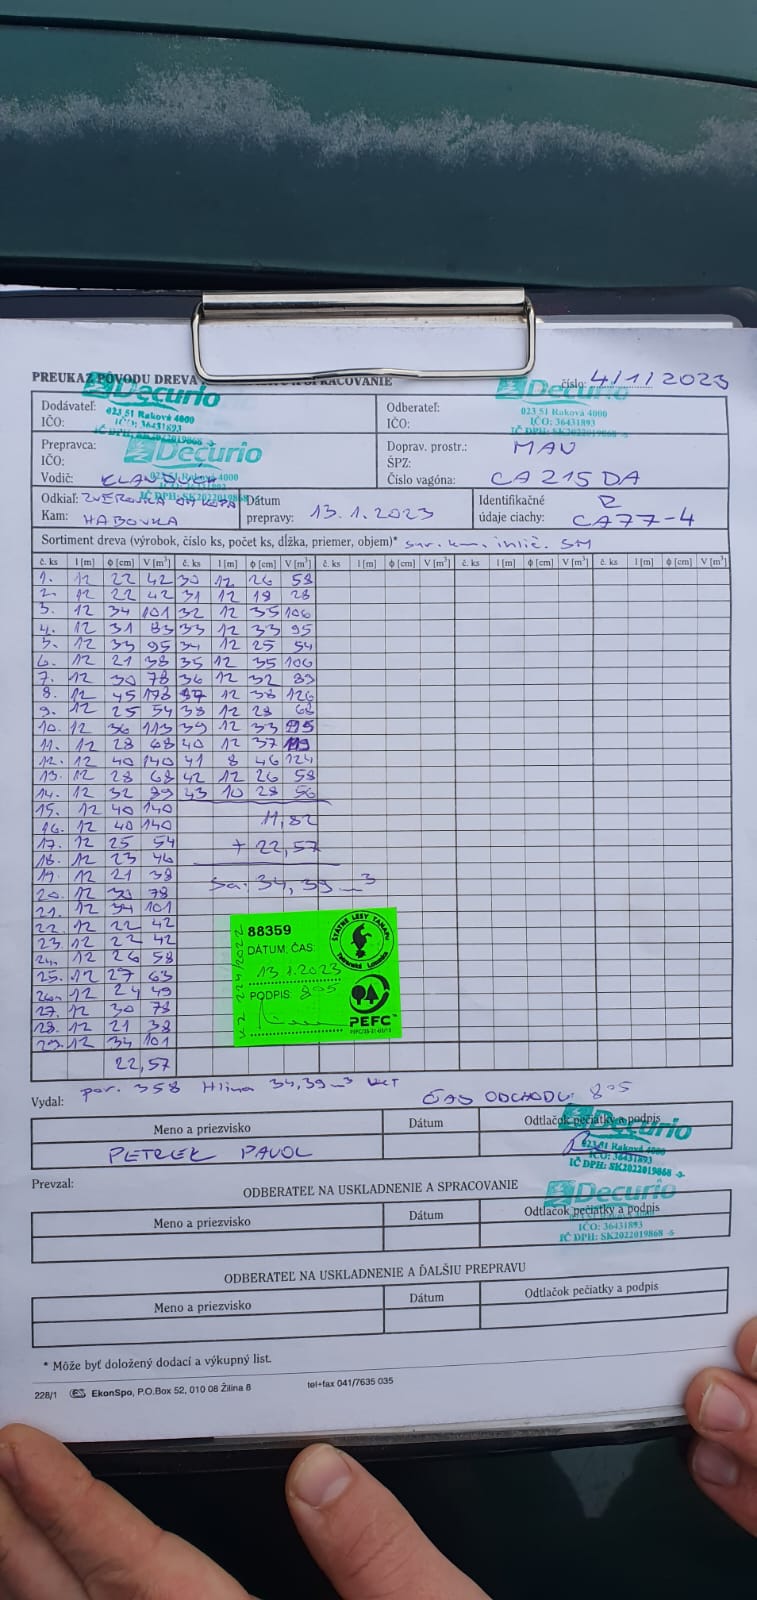 PREUKAZ PÔVODU DREVA
SPRACOVANIE
číslo: 4/1/2023
Decurio
023 51 Raková 4000
IČO: 36431893
IČ DPH: SK2022019868
Decurio
023 51 Raková 4000
IČO: 36431893
IČ DPH: SK2022019868
Dodávateľ:
IČO:
Odberateľ:
IČO:
Prepravca:
IČO:
Vodič:
Decurio
023 51 Raková 4000
IČ DPH: SK2022019868
Doprav. prostr.: MAN
ŠPZ:
Číslo vagóna: CA 215 DA
Odkiaľ: ZVEROVKA
Kam: HABOVKA
Dátum
prepravy: 13.1.2023
Identifikačné
údaje ciachy:
CA77-4
Sortiment dreva (výrobok, číslo ks, počet ks, dĺžka, priemer, objem)* SM
č. ks l [m] ϕ [cm] V [m³] č. ks l [m] ϕ [cm] V [m³] č. ks l [m] ϕ [cm] V [m³] č. ks l [m] ϕ [cm] V [m³] č. ks l [m] ϕ [cm] V [m³]
1. 12 22 42 30 12 26 58
2. 12 22 42 31 12 18 28
3. 12 34 101 32 12 35 106
4. 12 31 83 33 12 33 95
5. 12 33 95 34 12 25 54
6. 12 21 38 35 12 35 106
7. 12 30 78 36 12 32 89
8. 12 45 178 37 12 38 126
9. 12 25 54 38 12 28 68
10. 12 36 113 39 12 33 95
11. 12 28 68 40 12 37 119
12. 12 40 140 41 8 46 124
13. 12 28 68 42 12 26 58
14. 12 32 89 43 10 28 56
15. 12 40 140
16. 12 40 140 11,82
17. 12 25 54 + 22,57
18. 12 23 46
19. 12 21 38 Sa: 34,39 m³
20. 12 30 78
21. 12 34 101
22. 12 22 42
23. 12 22 42
24. 12 26 58
25. 12 27 63
26. 12 24 49
27. 12 30 78
28. 12 21 38
29. 12 34 101
22,57
88359
DÁTUM, ČAS:
13.1.2023
PODPIS: 8⁰⁵
ŠTÁTNE LESY TANAPU
Tatranská Lomnica
PEFC
por. 358 Hlina 34,39 m³
Vydal:
ČAS ODCHODU: 8⁰⁵
Meno a priezvisko
Dátum
Odtlačok pečiatky a podpis
PETREK PAVOL
Decurio
023 51 Raková 4000
IČO: 36431893
IČ DPH: SK2022019868
Prevzal:
ODBERATEĽ NA USKLADNENIE A SPRACOVANIE
Meno a priezvisko
Dátum
Odtlačok pečiatky a podpis
Decurio
IČO: 36431893
IČ DPH: SK2022019868
ODBERATEĽ NA USKLADNENIE A ĎALŠIU PREPRAVU
Meno a priezvisko
Dátum
Odtlačok pečiatky a podpis
* Môže byť doložený dodací a výkupný list.
228/1 EkonSpo, P.O.Box 52, 010 08 Žilina 8 tel+fax 041/7635 035